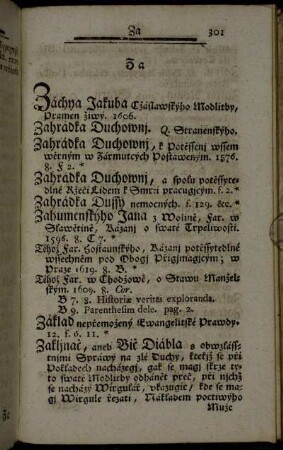 Za
301
Za
Záchya Jakuba Cžáslawskýho Modlitby,
Pramen žiwý. 1606.
Zahrádka Duchownj. Q. Stranenskýho.
Zahrádka Duchownj, k Potěssenj wssem
wěrným w Zármutcých Postaweným. 1576.
8. F 2. *
Zahrádka Duchownj, a spolu potěssyte-
dlné Ržeči Lidem k Smrti pracugjcým. f. 2. *
Zahrádka Dussý nemocných. f. 129. &c. *
Zahumenskýho Jana z Wolině, Far. w
Slawětině, Kázanj o swaté Trpeliwosti.
1596. 8. C 7. *
Téhož Far. Hostaunskýho, Kázanj potěssytedlné
wssechněm pod Obogj Přigjmagjcým; w
Praze 1619. 8. B. *
Téhož Far. w Chodžowě, o Stawu Manžel-
ským. 1609. 8. Cor.
B 7. 8. Historiæ veritas exploranda.
B 9. Parenthesim dele. pag. 2.
Základ nepřemožený Ewangelitské Prawdy.
12. f. 6. 11. *
Zakljnač, aneb Bič Diábla s obwzlásst-
njmi Spráwy na zlé Duchy, kteřjž se při
Pokladech nacházegj, gak se magj skrze ty-
to swaté Modlitby odháněti preč, při njchž
se nacházý Wirgulář, ukazugic, kde se ma-
gj Wirgule řezati, Nákladem poctiwýho
Muže